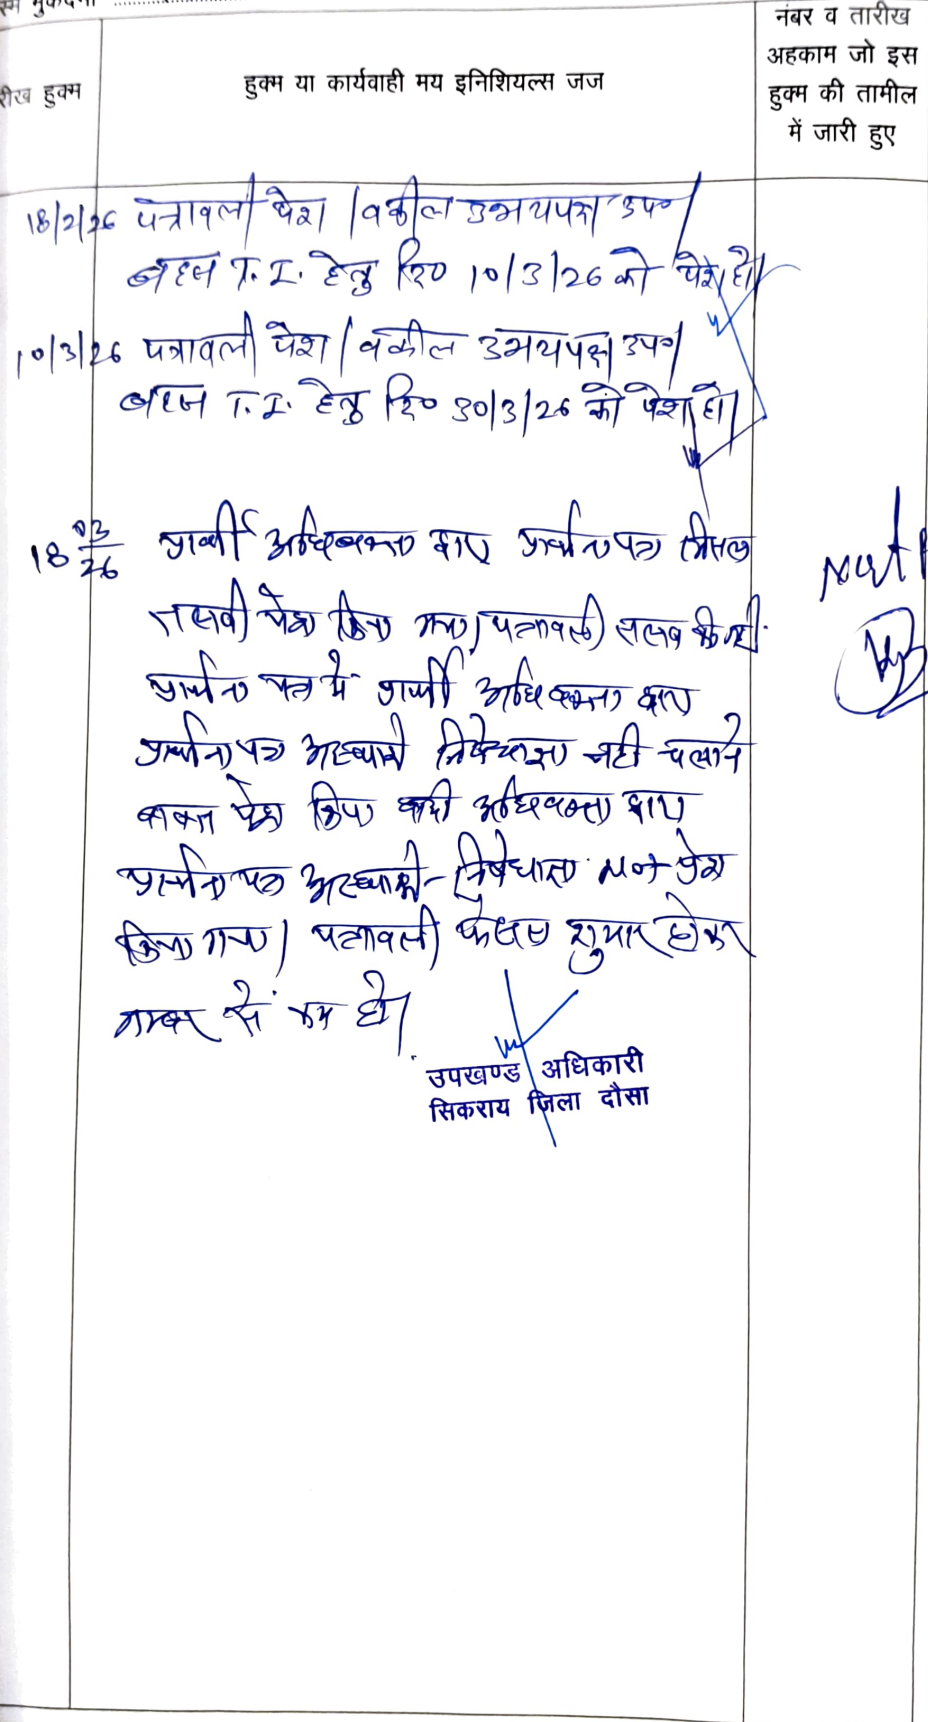 नंबर व तारीख
अहकाम जो इस
हुक्म की तामील
में जारी हुए
रीख हुक्म
हुक्म या कार्यवाही मय इनिशियल्स जज
18/2/26 पत्रावली पेश। वकील उभयपक्ष उप०।
बहस T. I. हेतु दि० 10/3/26 को पेश हो।
10/3/26 पत्रावली पेश। वकील उभयपक्ष उप०।
बहस T. I. हेतु दि० 30/3/26 को पेश हो।
18 03/26 प्रार्थी अधिवक्ता द्वारा प्रार्थना पत्र मिसल
तलबी पेश किया गया। पत्रावली तलब की गयी
प्रार्थना पत्र में प्रार्थी अधिवक्ता द्वारा
प्रार्थना पत्र अस्थायी निषेधाज्ञा नहीं चलाने
बाबत पेश किया अधिवक्ता द्वारा
प्रार्थना पत्र अस्थायी निषेधाज्ञा पेश
किया गया। पत्रावली फैसल शुमार होकर
नम्बर से कम हो।
उपखण्ड अधिकारी
सिकराय जिला दौसा